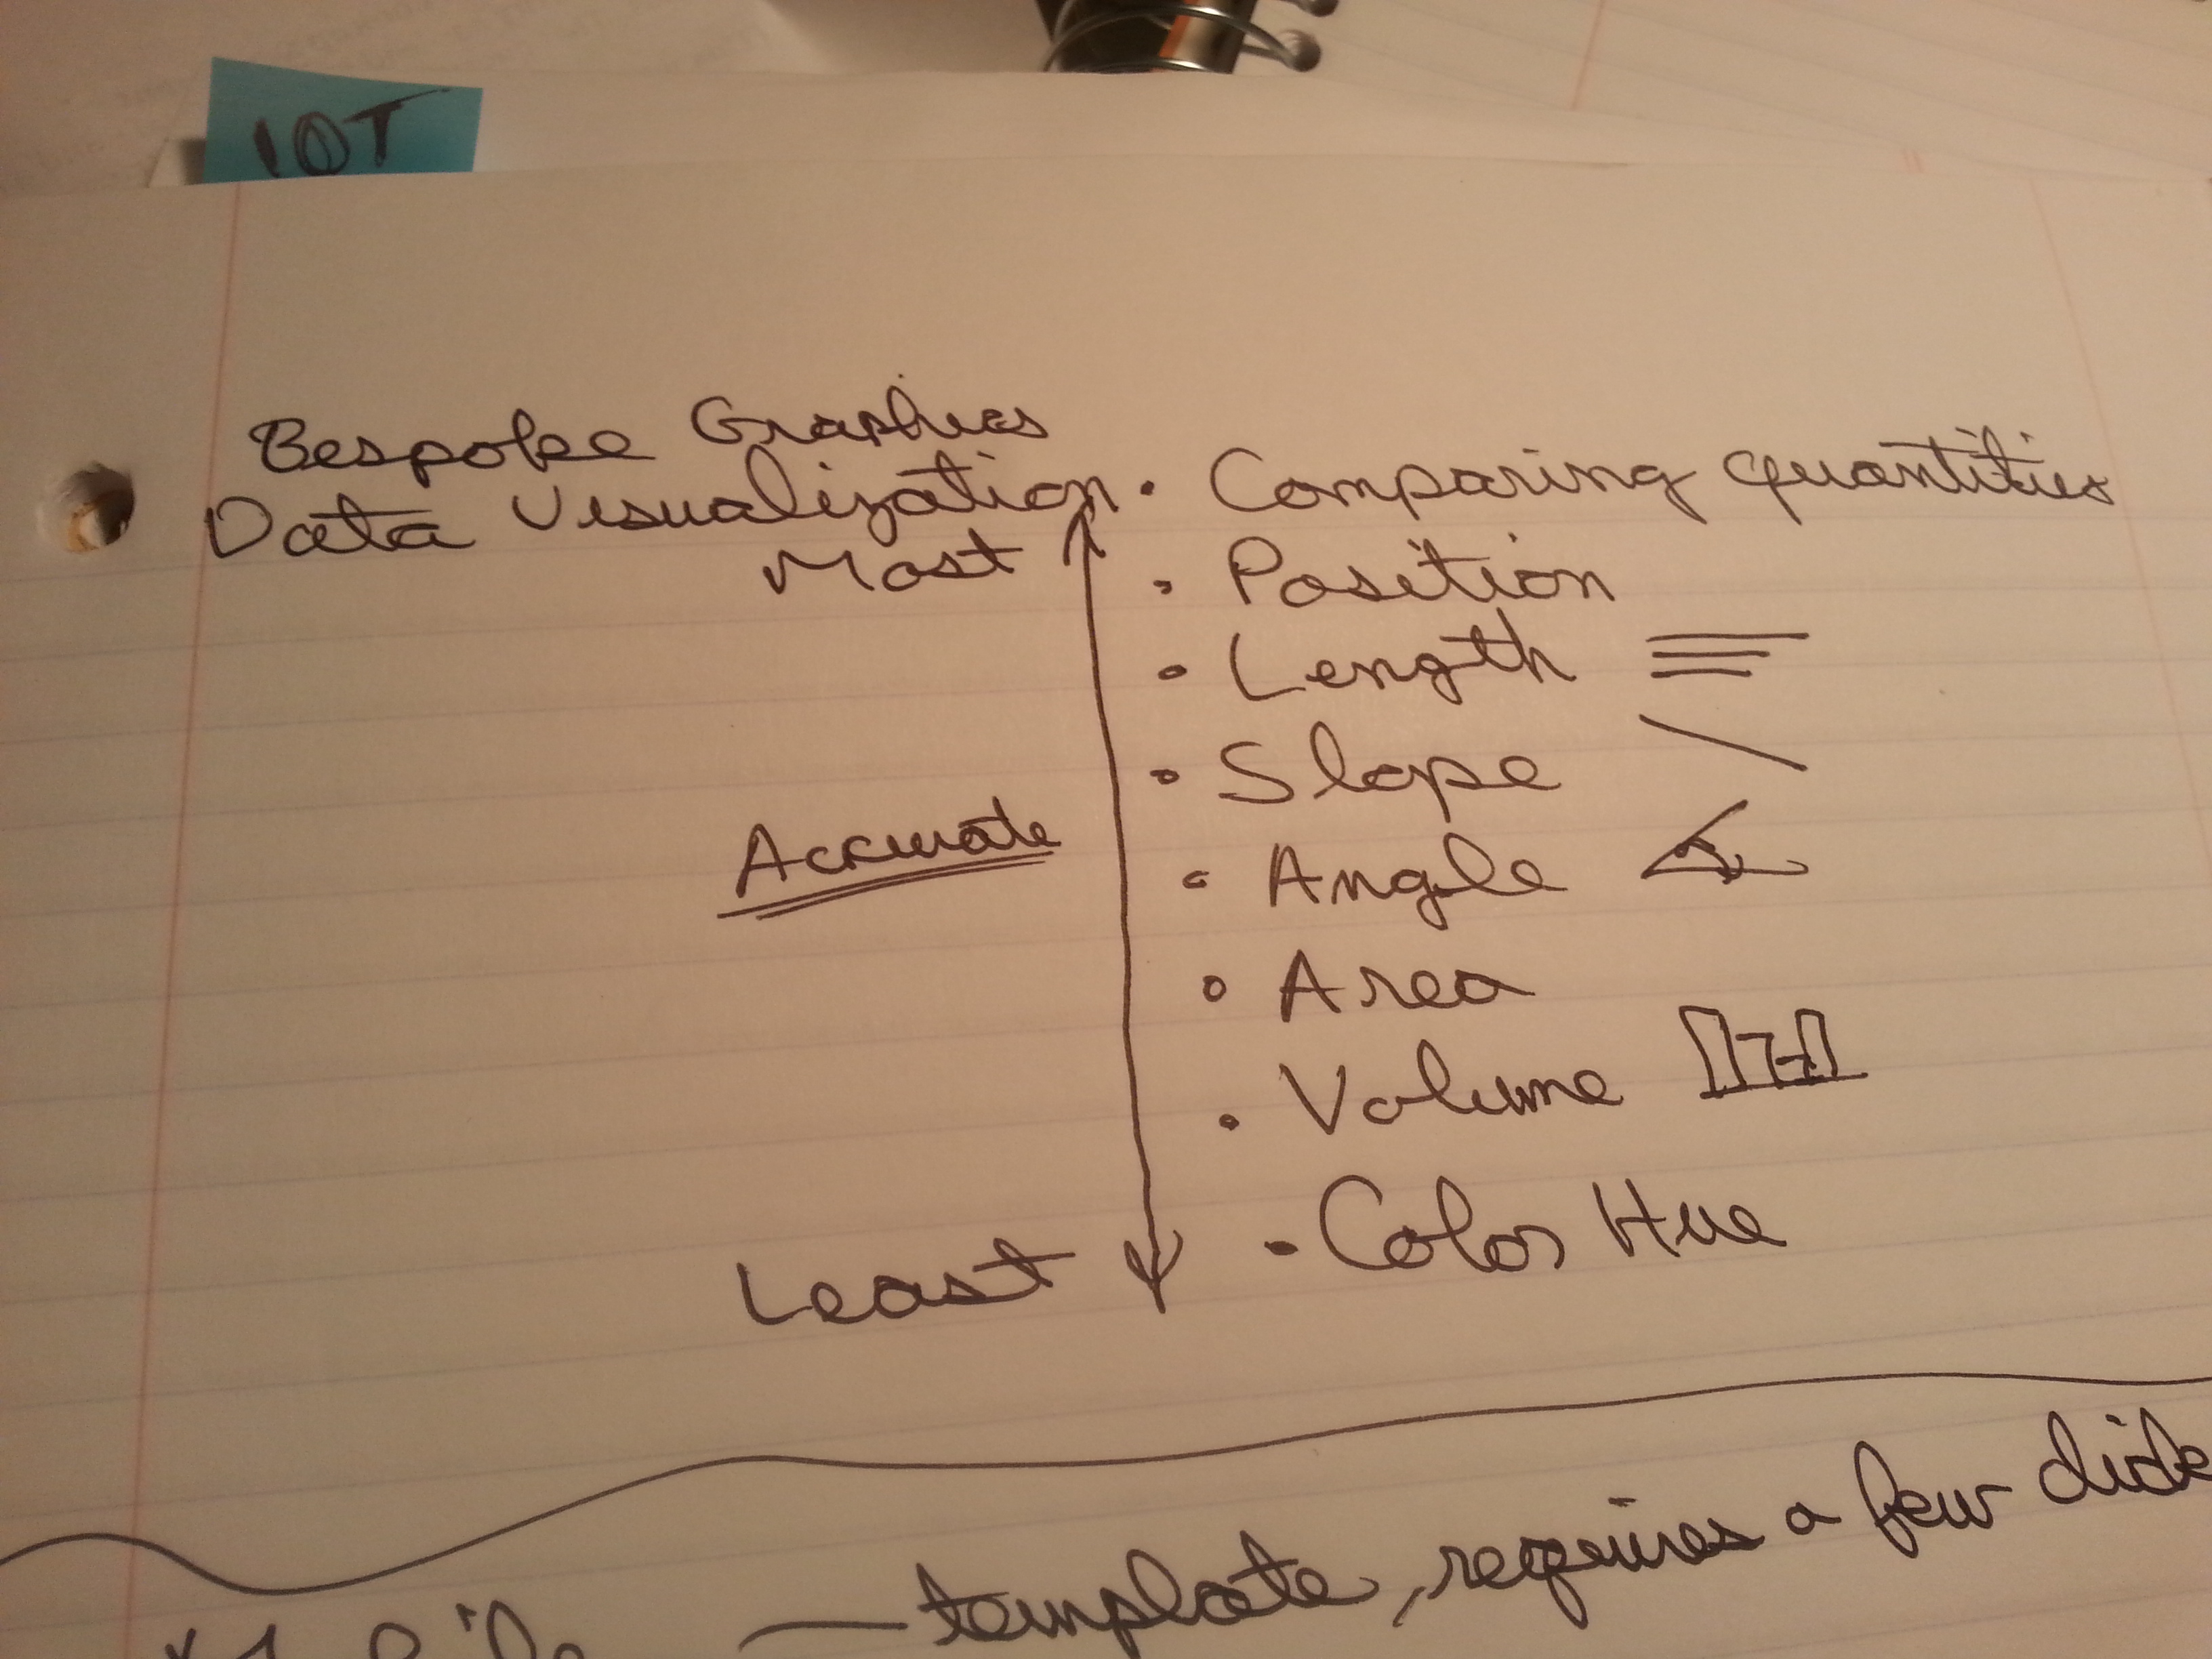 IOT
Bespoke Graphics
Data Visualization
• Comparing quantities
Most
• Position
• Length
• Slope
Accurate
• Angle
• Area
• Volume
Least
• Color Hue
— template, requires a few